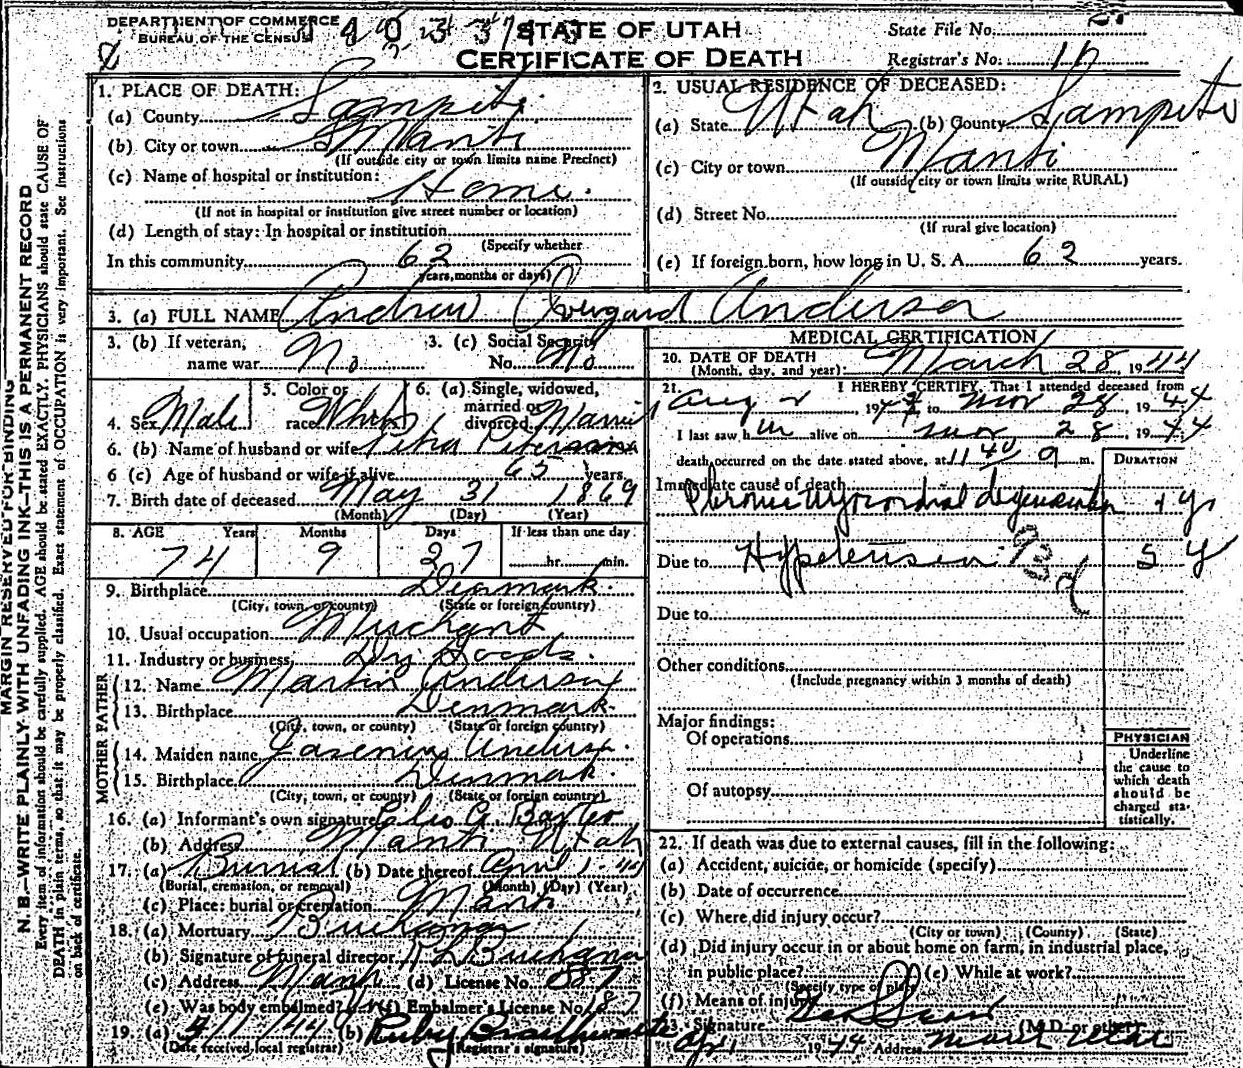 DEPARTMENT OF COMMERCE
BUREAU OF THE CENSUS
STATE OF UTAH
CERTIFICATE OF DEATH
State File No.
Registrar's No.
MARGIN RESERVED FOR BINDING
N. B.—WRITE PLAINLY WITH UNFADING INK—THIS IS A PERMANENT RECORD
Every item of information should be carefully supplied. AGE should be stated EXACTLY. PHYSICIANS should state CAUSE OF
DEATH in plain terms, so that it may be properly classified. Exact statement of OCCUPATION is very important. See instructions
on back of certificate.
1. PLACE OF DEATH:
(a) County Sanpete
(b) City or town Manti
(If outside city or town limits name Precinct)
(c) Name of hospital or institution:
Home.
(If not in hospital or institution give street number or location)
(d) Length of stay: In hospital or institution
(Specify whether
In this community 62
years, months or days)
2. USUAL RESIDENCE OF DECEASED:
(a) State Utah (b) County Sanpete
(c) City or town Manti
(If outside city or town limits write RURAL)
(d) Street No.
(If rural give location)
(e) If foreign born, how long in U. S. A. 62 years.
3. (a) FULL NAME Andrew Anderson
3. (b) If veteran,
name war No
3. (c) Social Security
No. No
4. Sex Male
5. Color or
race White
6. (a) Single, widowed,
married or
divorced Married
6. (b) Name of husband or wife Petra Peterson
6 (c) Age of husband or wife if alive 65 years
7. Birth date of deceased May 31 1869
(Month) (Day) (Year)
8. AGE Years Months Days If less than one day
74 9 27 hr. min.
9. Birthplace Denmark.
(City, town, or county) (State or foreign country)
10. Usual occupation Merchant
11. Industry or business Dry Goods.
FATHER
12. Name Martin Anderson
13. Birthplace Denmark.
(City, town, or county) (State or foreign country)
MOTHER
14. Maiden name
15. Birthplace Denmark.
(City, town, or county) (State or foreign country)
16. (a) Informant's own signature
(b) Address Manti Utah
17. (a) Burial (b) Date thereof April 1-44
(Burial, cremation, or removal) (Month) (Day) (Year)
(c) Place: burial or cremation Manti
18. (a) Mortuary Buchanan
(b) Signature of funeral director Buchanan
(c) Address Manti (d) License No.
(e) Was body embalmed? (f) Embalmer's License No. 187
19. (a) 4/1/44 (b) Ruby Braithwaite
(Date received local registrar) (Registrar's signature)
MEDICAL CERTIFICATION
20. DATE OF DEATH
(Month, day, and year): March 28, 1944
21. I HEREBY CERTIFY, That I attended deceased from
Aug , 19 to Mar 28, 1944
I last saw him alive on Mar 28, 1944
death occurred on the date stated above, at 11 40 m.
DURATION
Immediate cause of death
Chronic myocardial degeneration
Due to Hypertension 5 y
93d
Due to
Other conditions
(Include pregnancy within 3 months of death)
Major findings:
Of operations
Of autopsy
PHYSICIAN
Underline
the cause to
which death
should be
charged sta-
tistically.
22. If death was due to external causes, fill in the following:
(a) Accident, suicide, or homicide (specify)
(b) Date of occurrence
(c) Where did injury occur?
(City or town) (County) (State)
(d) Did injury occur in or about home on farm, in industrial place,
in public place? (e) While at work?
(Specify type of place)
(f) Means of injury
23. Signature (M.D. or other)
Apr 1 1944 Address Manti Utah